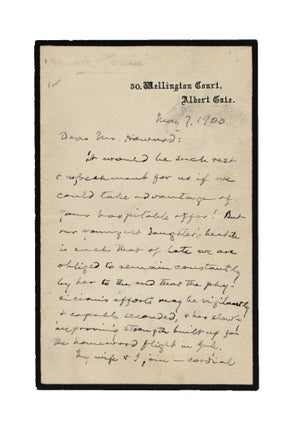 30, Wellington Court,
Albert Gate.
May 7, 1900
Dear Mr Howard:
It would be such rest
& refreshment for us if we
could take advantage of
your hospitable offer! But
our youngest daughter's health
is such that of late we are
obliged to remain constantly
by her to the end that the phy-
sician's efforts may be vigilantly
& capably seconded, & her slowly
improving strength built up for
the homeward flight in July.
My wife & I join in cordial